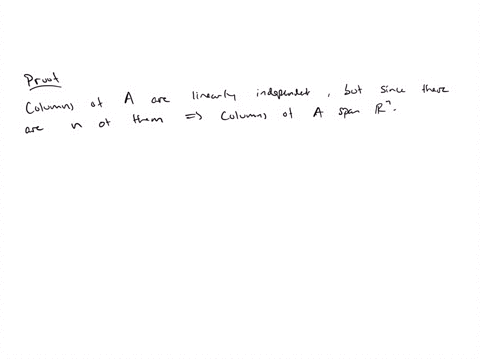 Proof
Columns of A are linearly independent, but since there
are n of them => Columns of A span ℝⁿ.